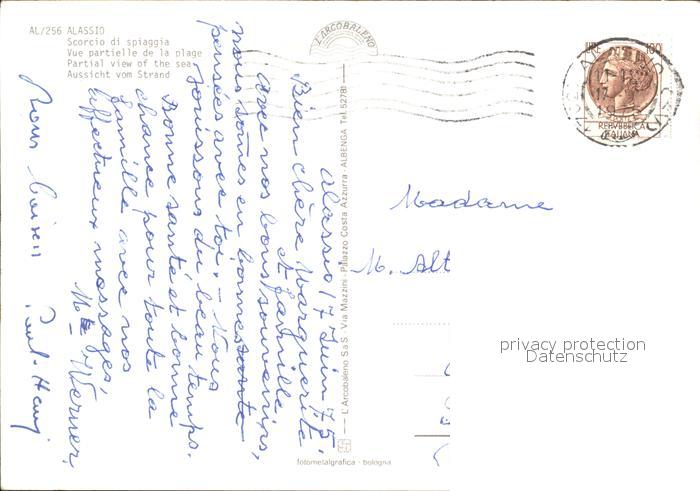 AL/256 ALASSIO
Scorcio di spiaggia
Vue partielle de la plage
Partial view of the sea
Aussicht vom Strand
L'ARCOBALENO
LIRE 100
REPVBBLICA
ITALIANA
Alassio 17 Juin 75.
Bien chère Marguerite
et famille,
Avec nos bons souvenirs,
nous sommes en bonne santé
pensées avec toi. - Nous
jouissons du beau temps.
Bonne santé et bonne
chance pour toute la
famille avec nos
affectueux messages,
Werner,
Paul-Henry
L'Arcobaleno S.a.S. Via Mazzini - Palazzo Costa Azzurra - ALBENGA Tel. 52781
Madame
M. Alt
privacy protection
Datenschutz
fotometalgrafica - bologna